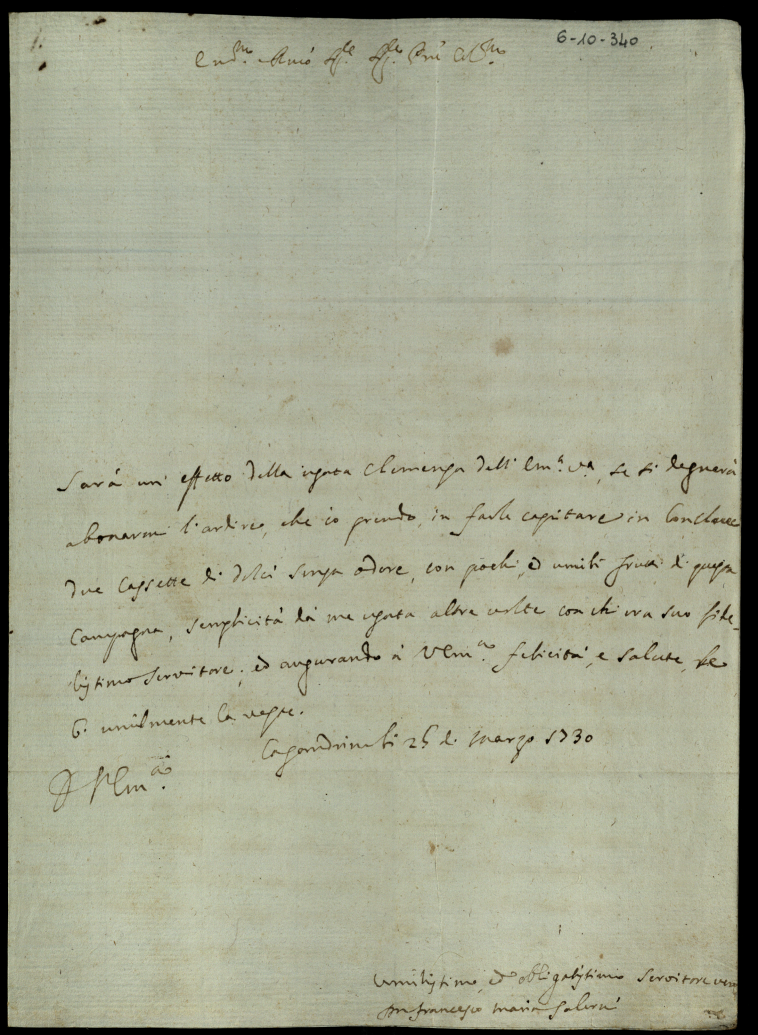 6-10-340
Sarà un' effetto della usata Clemenza dell' Em.ª V.ª, se si degnerà
abonarmi l'ardire, che io prendo, in farle capitare in Conclave
due Cassette di dolci senza odore, con pochi, ed umili frutti di questa
Campagna, semplicità dà me usata altre volte con chi era suo fide-
lissimo Servitore; ed augurando à V. Em.ª felicità, e salute, le
b. umilmente la veste.
25 di Marzo 1730
D V. Em.ª
Umilissimo, ed obligatissimo Servitore vero
Francesco Maria Salerni